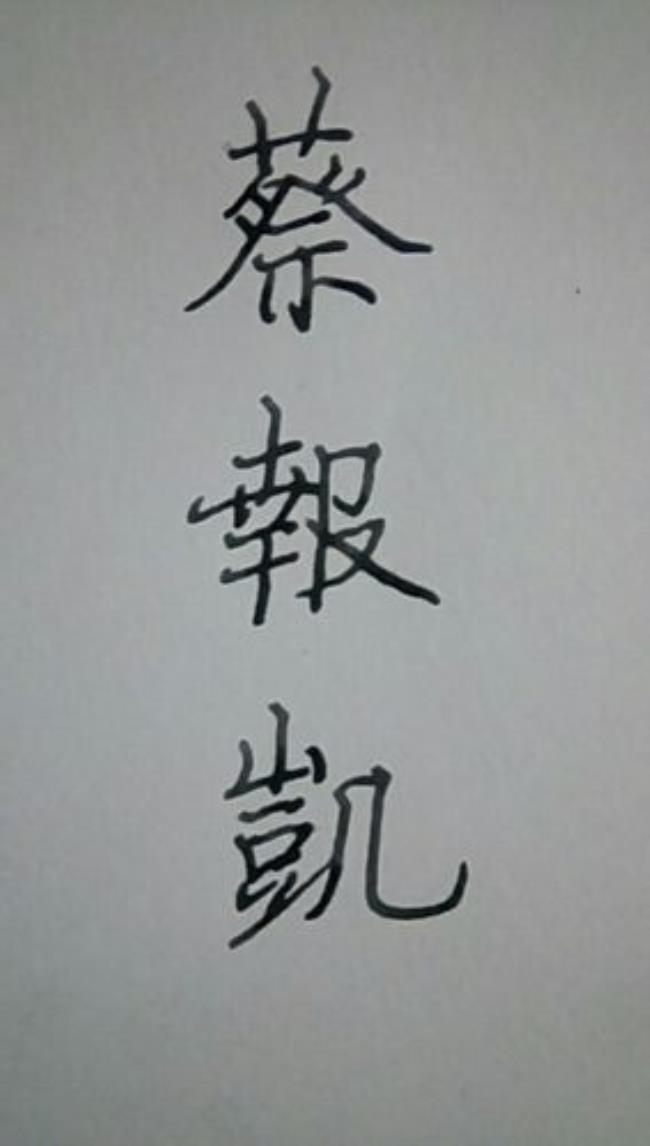 蔡報凱